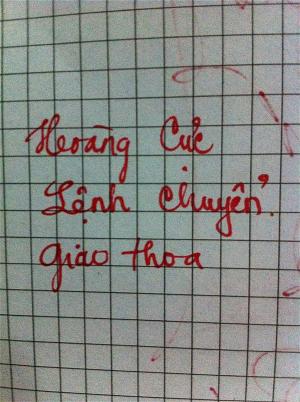 Hoàng Cực
Lệnh chuyển.
giáo thoa